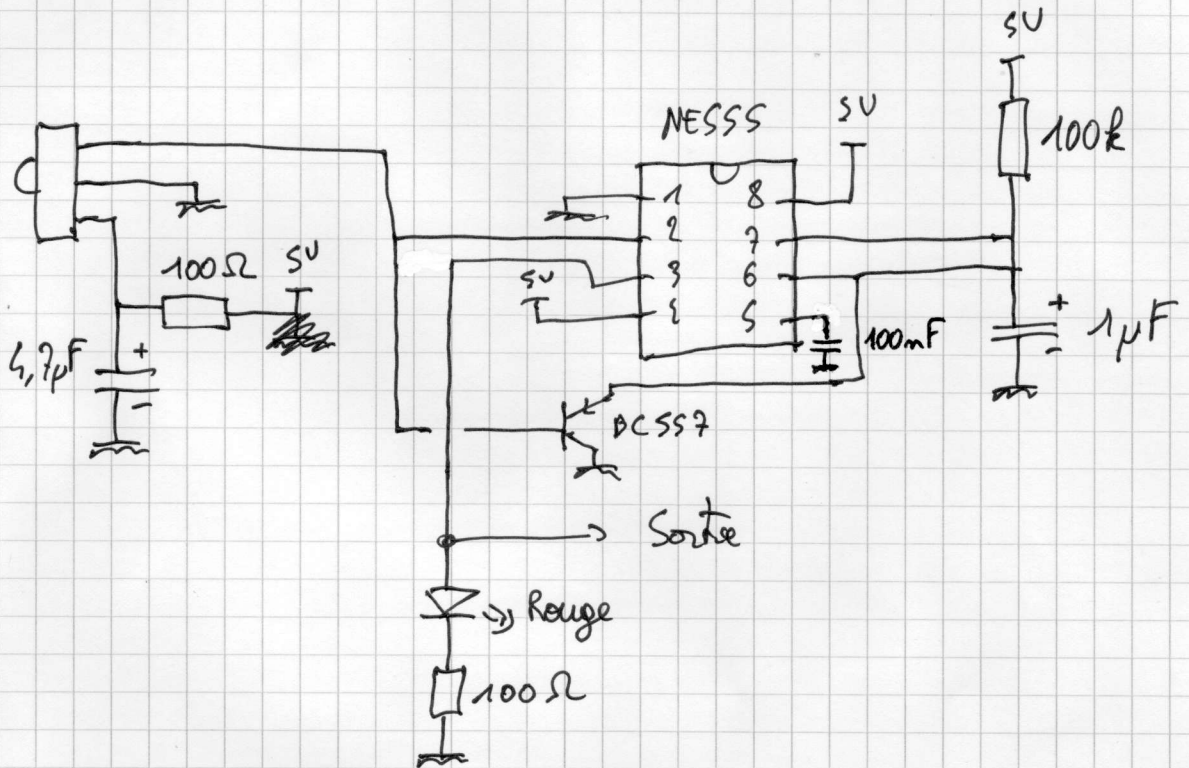 5V
NE555
5V
100k
1 8
2 7
3 6
4 5
100Ω 5V
5V
4,7µF
+
-
100nF
+
1µF
-
BC557
Sortie
Rouge
100Ω